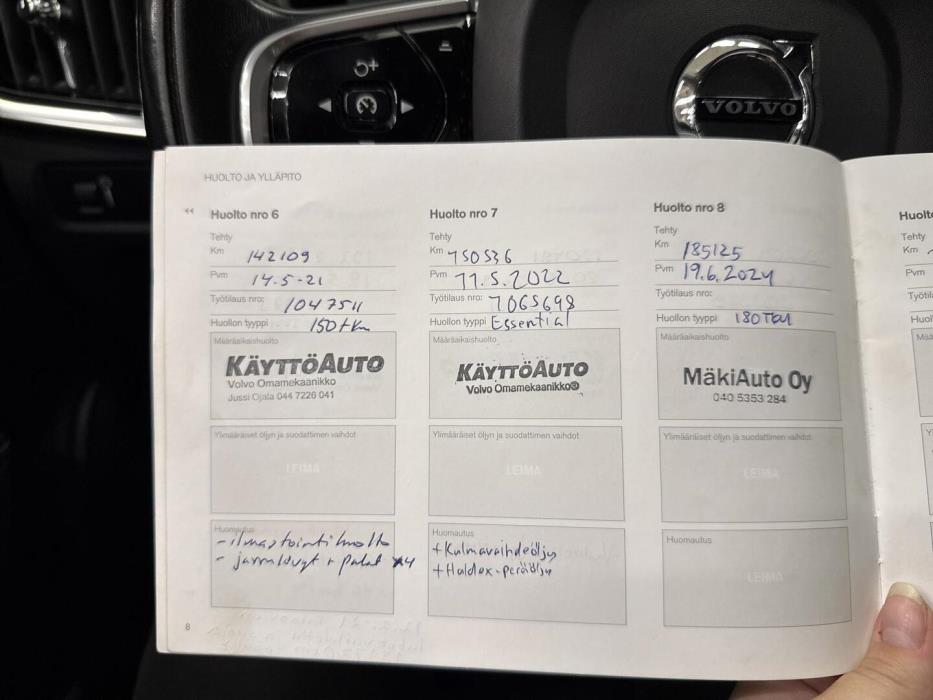 VOLVO
HUOLTO JA YLLÄPITO
Huolto nro 6
Tehty
Km 142109
Pvm 14.5-21
Työtilaus nro: 1047511
Huollon tyyppi 150tkm
Määräaikaishuolto
KÄYTTÖAUTO
Volvo Omamekaanikko
Jussi Ojala 044 7226 041
Ylimääräiset öljyn ja suodattimen vaihdot
LEIMA
Huomautus
- ilmastointihuolto
- jarrulevyt + palat x4
Huolto nro 7
Tehty
Km 150536
Pvm 11.5.2022
Työtilaus nro: 7065698
Huollon tyyppi Essential
Määräaikaishuolto
KÄYTTÖAUTO
Volvo Omamekaanikko
Ylimääräiset öljyn ja suodattimen vaihdot
LEIMA
Huomautus
+ Kulmavaihdeöljy
+ Haldex-peräöljy
Huolto nro 8
Tehty
Km 185125
Pvm 19.6.2024
Työtilaus nro:
Huollon tyyppi 180TKM
Määräaikaishuolto
MäkiAuto Oy
040 5353 284
Ylimääräiset öljyn ja suodattimen vaihdot
LEIMA
Huomautus
LEIMA
Tehty
Km
Pvm
8